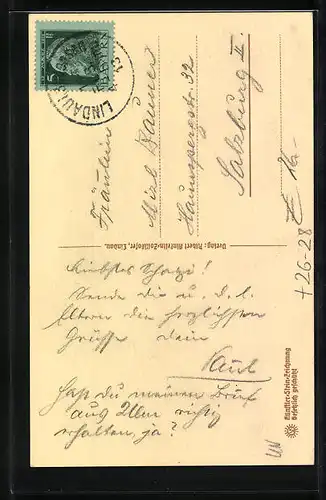 5
BAYERN
LINDAU
Fräulein
Mizl Bauner
Haunspergstr. 32
Salzburg II
Verlag: Robert
Lindau.
Liebstes Schatzi!
Sende dir u. d. l.
Eltern die herzlichsten
Grüsse dein
Paul
Hast du meinen Brief
aus Ulm richtig
erhalten, ja?
Künstler-Stein-Zeichnung
Gesetzlich geschützt
+26-28